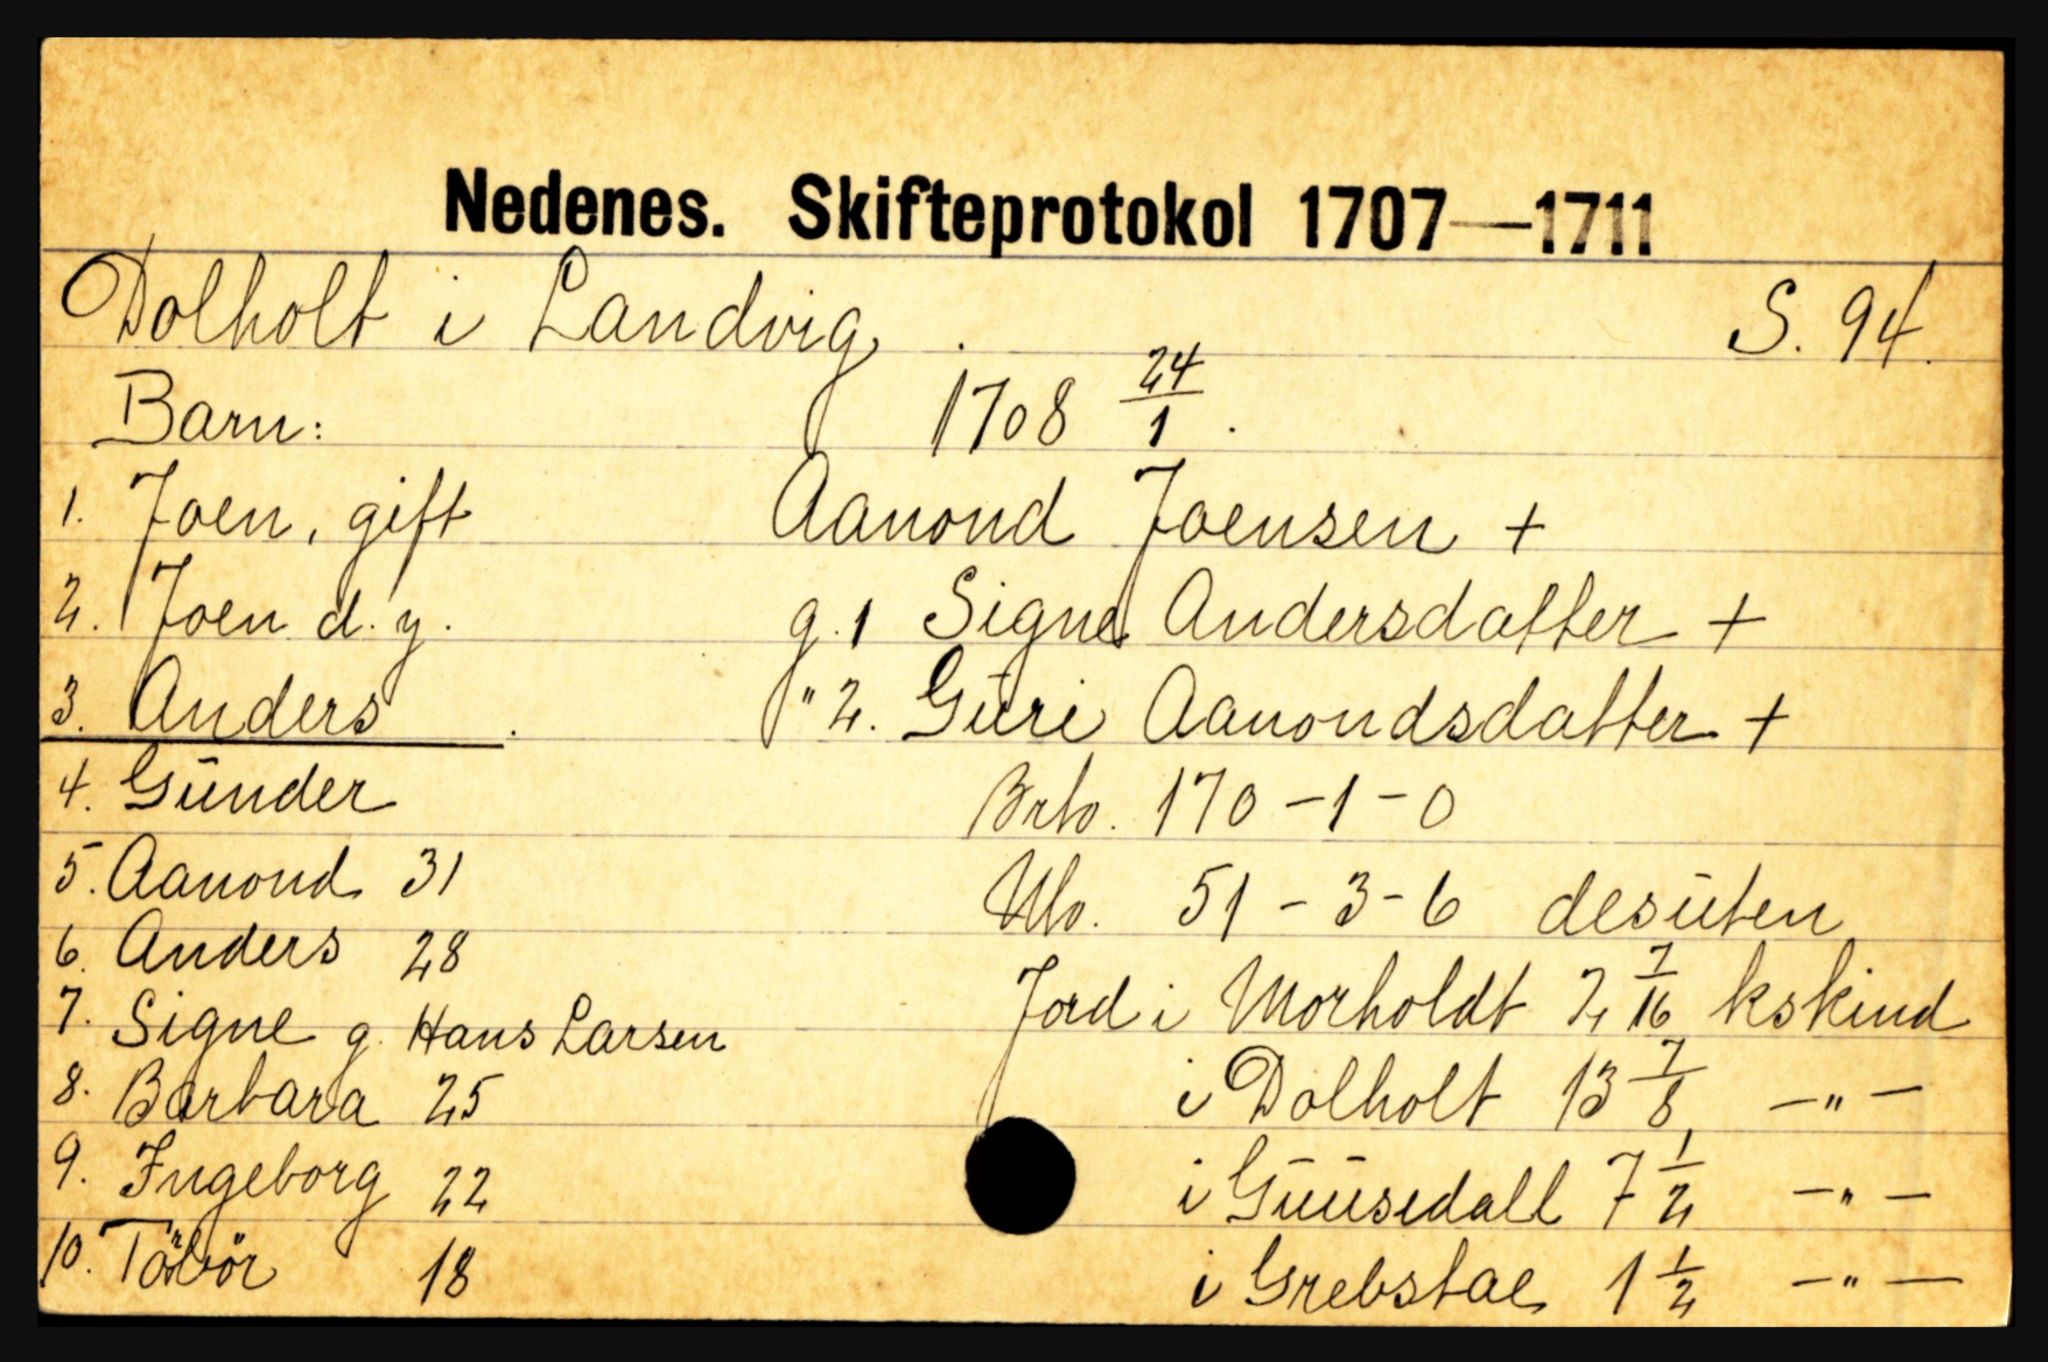 Nedenes. Skifteprotokol 1707—1711
Dolholt i Landvig. S. 94.
Barn: 1708 24/1.
1. Joen, gift Aanond Joensen +
2. Joen d. y. g. 1 Signe Andersdatter +
3. Anders. " 2. Gūri Aanondsdatter +
4. Gūnder Brto. 170-1-0
5. Aanond 31 Nto. 51-3-6 desūten
6. Anders 28 Jord i Morholdt 2 7/16 kskind
7. Signe g. Hans Larsen
8. Barbara 25 i Dolholt 13 7/8 -"-
9. Ingeborg 22 i Gūūsedall 7 1/2 -"-
10. 18 i Grebstae 1 1/2 -"-